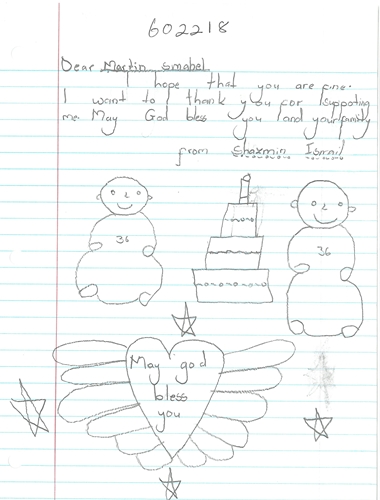 602218
Dear Martin smabel
I hope that you are fine.
I want to thank you for suppoting
me. May God bless you and your family
from Shaxmin Ismail
36
36
May god
bless
you